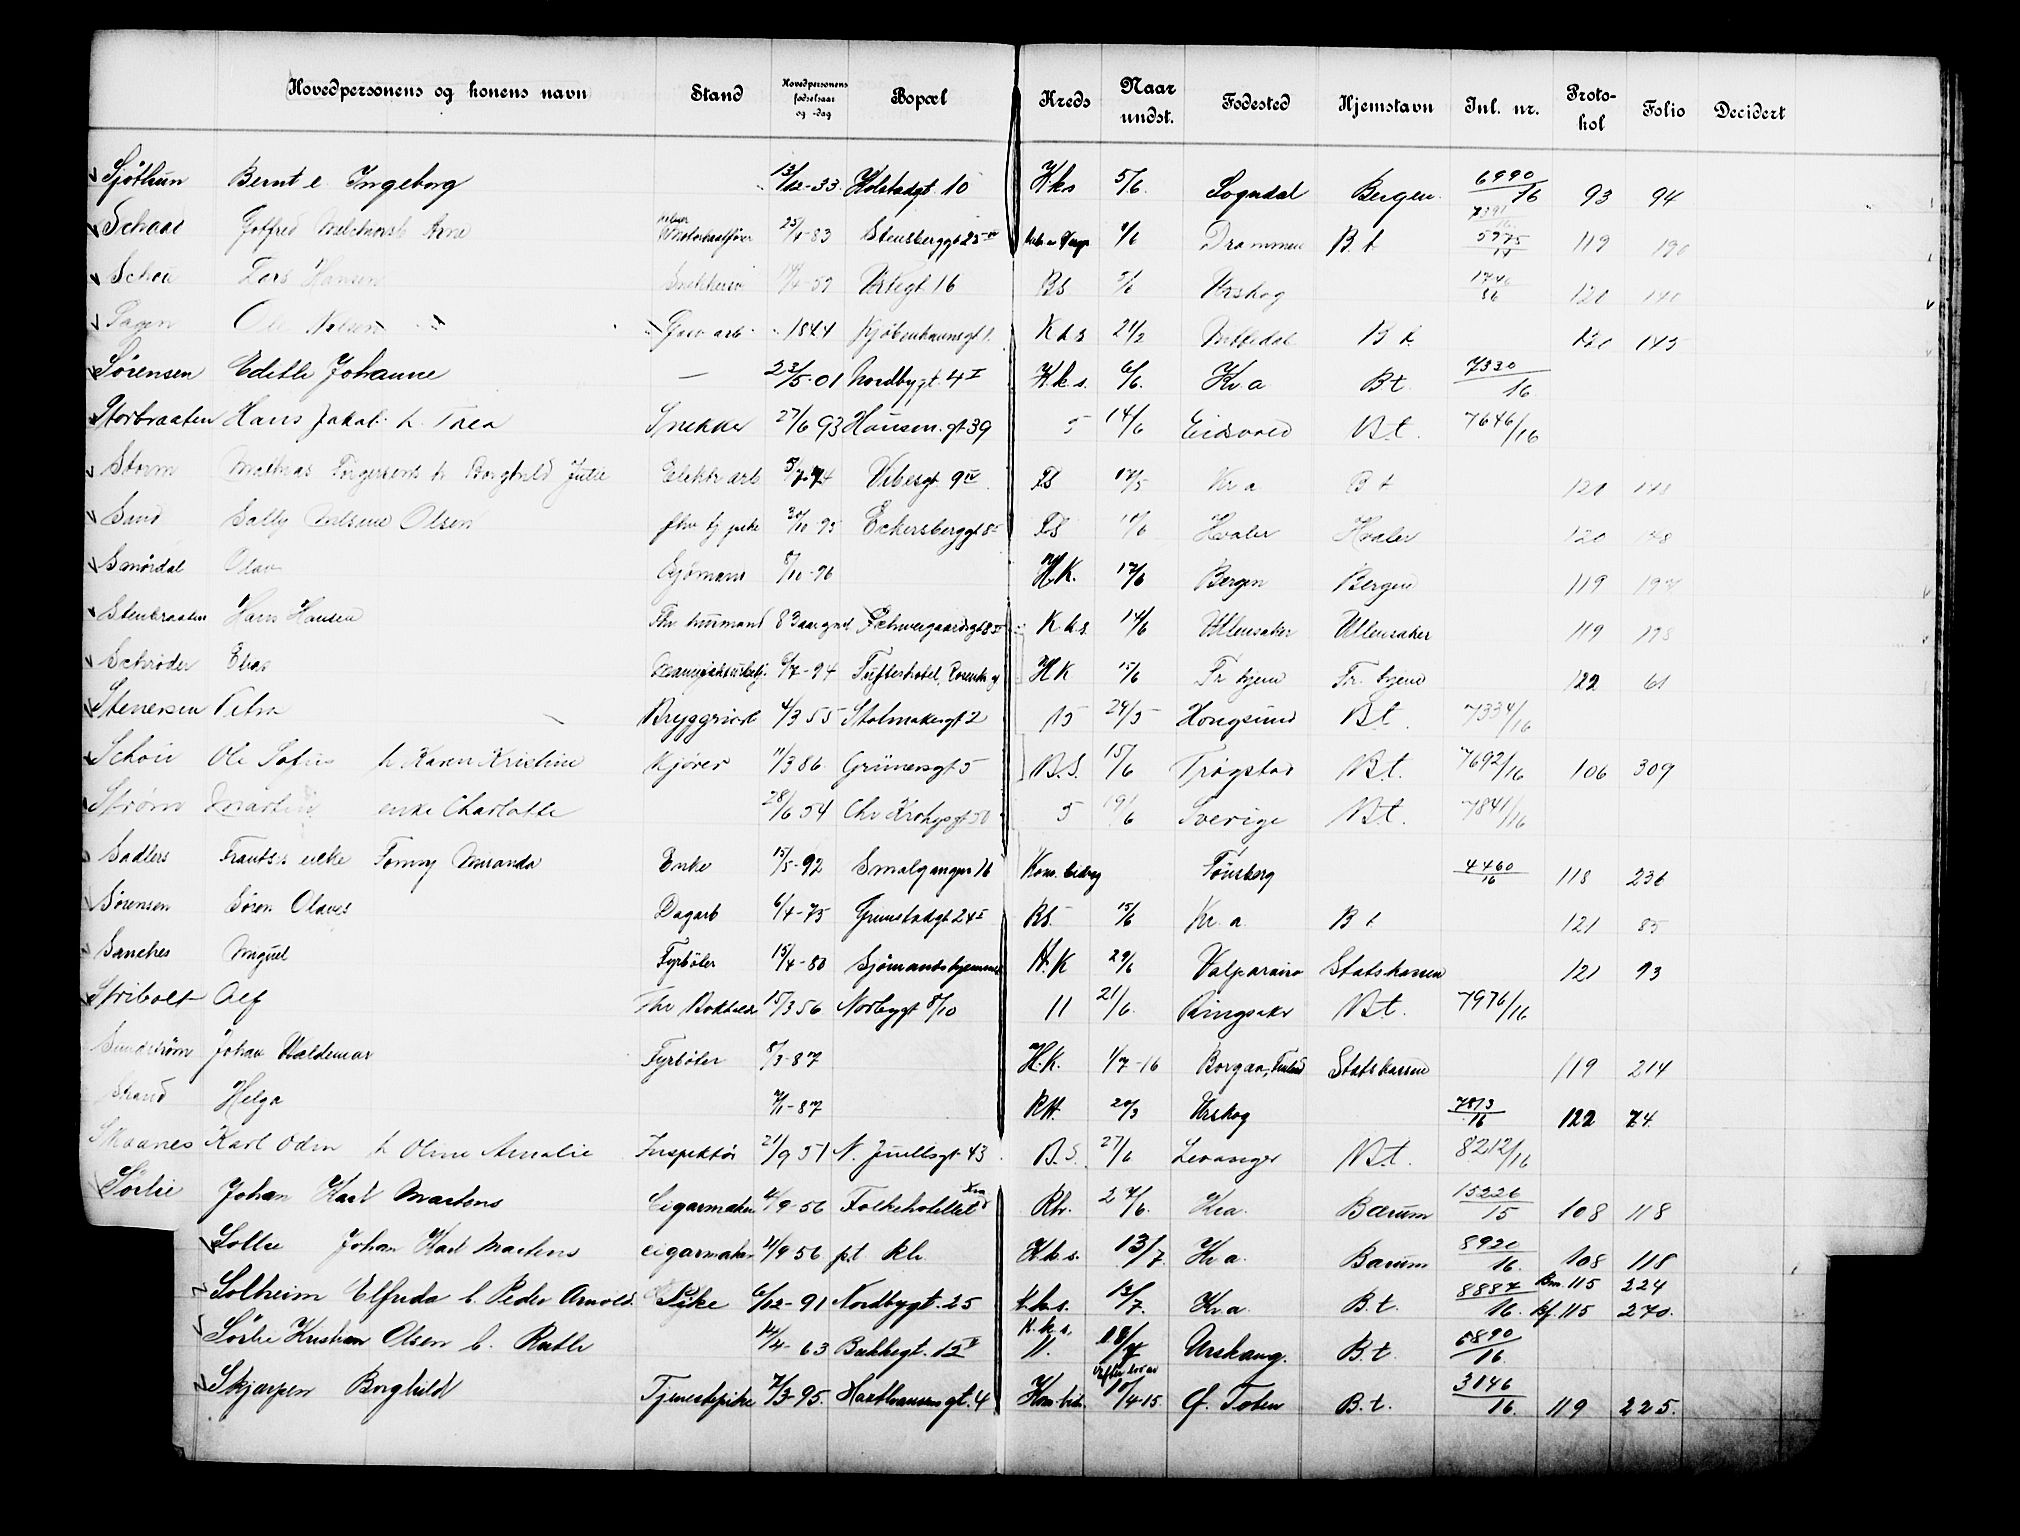 Hovedpersonens og konens navn Stand Hovedpersonens fødselsaar og -dag Bopæl Kreds Naar undst. Fødested Hjemstavn Inl. nr. Protokol Folio Decidert
Sjøthun Bernt e. Ingeborg 13/12-33 Holstadgt. 10 Kks 5/6. Sogndal Bergen 6990/16 93 94
Schaar Gotfred 25/1-83 Stensberggt 25 Drammen B.t. 5975 119 190
Schou Lars Hansen Snekkersv 57 16 BS Urskog 1746/16 120 140
Sagen Ole Nelsen Gasv arb 1844 Kjøbenhavnsgt 1. Kks 21/2 B t. 120 143
Sørensen Edith Johanne — 23/5-01 Nordbygt. 4 I K.k.s. 6/6. Kr.a B.t. 7330/16
Storbraaten Hans Jakob h. Thea Snekker 27/6 93 Hausm. gt 39 5 14/6 Eidsvold B.t. 7646/16
Storm Mathias Torgersens h Borghild Julie Elektr arb Vibesgt. 9 IV FS 17/5 Kr a B t 120 148
Sand Sally Nilsine Olsen 30/10-95 Eckersberggt 8 FS 11/6 Hvaler Hvaler 120 148
Smørdal Olav Sjømann 8/10-96 H.K. 17/6 Bergen Bergen 119 197
Stenbraaten Hans Hansen Fhv. 83 aar gml Schweigaardsgt 85 Kks. 14/6 Ullensaker Ullensaker 119 198
Schrøder Elias 6/7-94 Tufteshotel, Rosenkr gt HK 15/6 Tr hjem Tr. hjem 122 61
Stenersen Petra Bryggriarb 4/3 55 Stolmakergt 2 15 24/5 Hongsund B.t. 7334/16
Schou Ole Sofus h Karen Kristine Kjører 11/3 86 Grünersgt 5 B.S. 15/6 Trøgstad B.t. 7692/16 106 309
Strøm Martin enke Charlotte 28/6 54 Chr Krohgsgt 50 5 19/6 Sverige B.t. 7841/16
Sadlers Frantsis enke Fanny Miranda Enke 15/5-92 Smalgangen 16 Kom. bidrag Tønsberg 4460/16 118 236
Sørensen Søren Olaves Dagarb 6/4-75 Grimstadgt 24 I BS. 15/6 Kr. a. B t 121 85
Sanches Miguel Fyrbøter 15/4-80 Sjømandshjemmet H.K 29/6 Valparaiso Statskassen 121 93
Stribolt Alf Fhv Bokholder 15/3 56 Norbygt 8/10 11 21/6. Ringsaker B.t. 7976/16
Sundstrøm Johan Valdemar Fyrbøter 8/3-87 H.K. 1/7-16 Borgaa, Finland Statskassen 119 214
Strand Helga 7/1-87 RH. 20/3 Urskog 7873/16 122 74
Skaanes Karl Odin h Oline Amalie Inspektør 21/9 51 N. Juellsgt 43 B.S. 27/6 Levanger B.t. 8212/16
Sørlie Johan Karl Martens Cigarmaker 4/9-56 Folkehotellet Kra Rh. 27/6. Kra. Bærum 15226/15 108 118
Sollie Johan Karl Martens Cigarmaker 4/9 56 pt. Rh. K.k.s. 13/7. Kr.a. Bærum 8920/16. 108 118
Solheim Elfrida h. Peder Arnold. Pike 6/12-91 Nordbygt. 25 K.k.s. 13/7. Kr.a. B.t. 8887/16. Bm. 115 224
Kf. 115 270.
Sørlie Kristian Olsen h. Ruth 14/4-63 Bakkegt. 12 V K.k.s. 11. 18/7 Urskaug. B.t. 6890/16.
Skjarpen Borghild Tjenestepike 7/3-95. Markveien gt. 4 Kom. bid. 10/4-15. Ø. Toten B.t. 3146/16. 119 225.